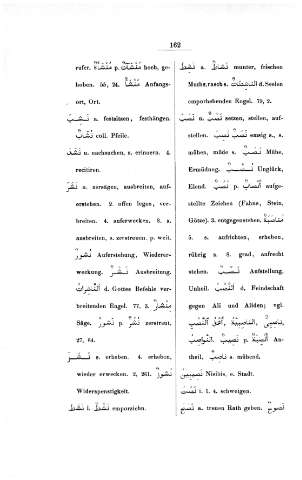 162
rufer. مُنْشَأَةٌ p. مُنْشَآتٌ hoch, ge-
hoben. 55, 24. مَنْشَأٌ Anfangs-
ort, Ort.
نَشَبَ a. festsitzen, festhängen.
نُشَّابٌ coll. Pfeile.
نَشَدَ u. nachsuchen, s. erinnern. 4.
recitiren.
نَشَرَ u. zersägen, ausbreiten, auf-
erstehen. 2. offen legen, ver-
breiten. 4. auferwecken. 8. s.
ausbreiten, s. zerstreuen. p. weit.
نُشُورٌ Auferstehung, Wiederer-
weckung. نَشْرٌ Ausbreitung.
النَّاشِرَاتُ d. Gottes Befehle ver-
breitenden Engel. 77, 3. مِنْشَارٌ
Säge. مَنْشُورٌ p. نُشُرٌ zerstreut.
27, 64.
نَشَزَ u. erheben. 4. erheben,
wieder erwecken. 2, 261. نُشُوزٌ
Widerspenstigkeit.
نَشَطَ i. نَشْطٌ emporziehn.
نَشِطَ a. نَشَاطٌ munter, frischen
Muths, rasch s. النَّاشِطَاتُ d. Seelen
emporhebenden Engel. 79, 2.
نَصَبَ u. نَصْبٌ setzen, stellen, auf-
stellen. نَصِبَ نَصَبٌ emsig s., s.
mühen, müde s. نَصَبٌ Mühe,
Ermüdung. نُصْبٌ Unglück,
Elend. نُصُبٌ p. أَنْصَابٌ aufge-
stellte Zeichen (Fahne, Stein,
Götze). 3. entgegenstehen. مُنَاصَبَةٌ
5. s. aufrichten, erheben,
rührig s. 8. grad, aufrecht
stehen. نَصْبٌ Aufstellung.
Unheil. النَّصْبُ d. Feindschaft
gegen Ali und Aliden; vgl.
نَاصِبِىٌّ, النَّاصِبِيَّةُ, أَهْلُ النَّصْبِ,
النَّوَاصِبُ. نَصِيبٌ p. أَنْصِبَةٌ An-
theil, نَاصِبٌ s. mühend.
نَصِيبِينُ Nisibis, e. Stadt.
نَصَتَ i. 1. 4. schweigen.
نَصَحَ a. treuen Rath geben. نَصُوحٌ